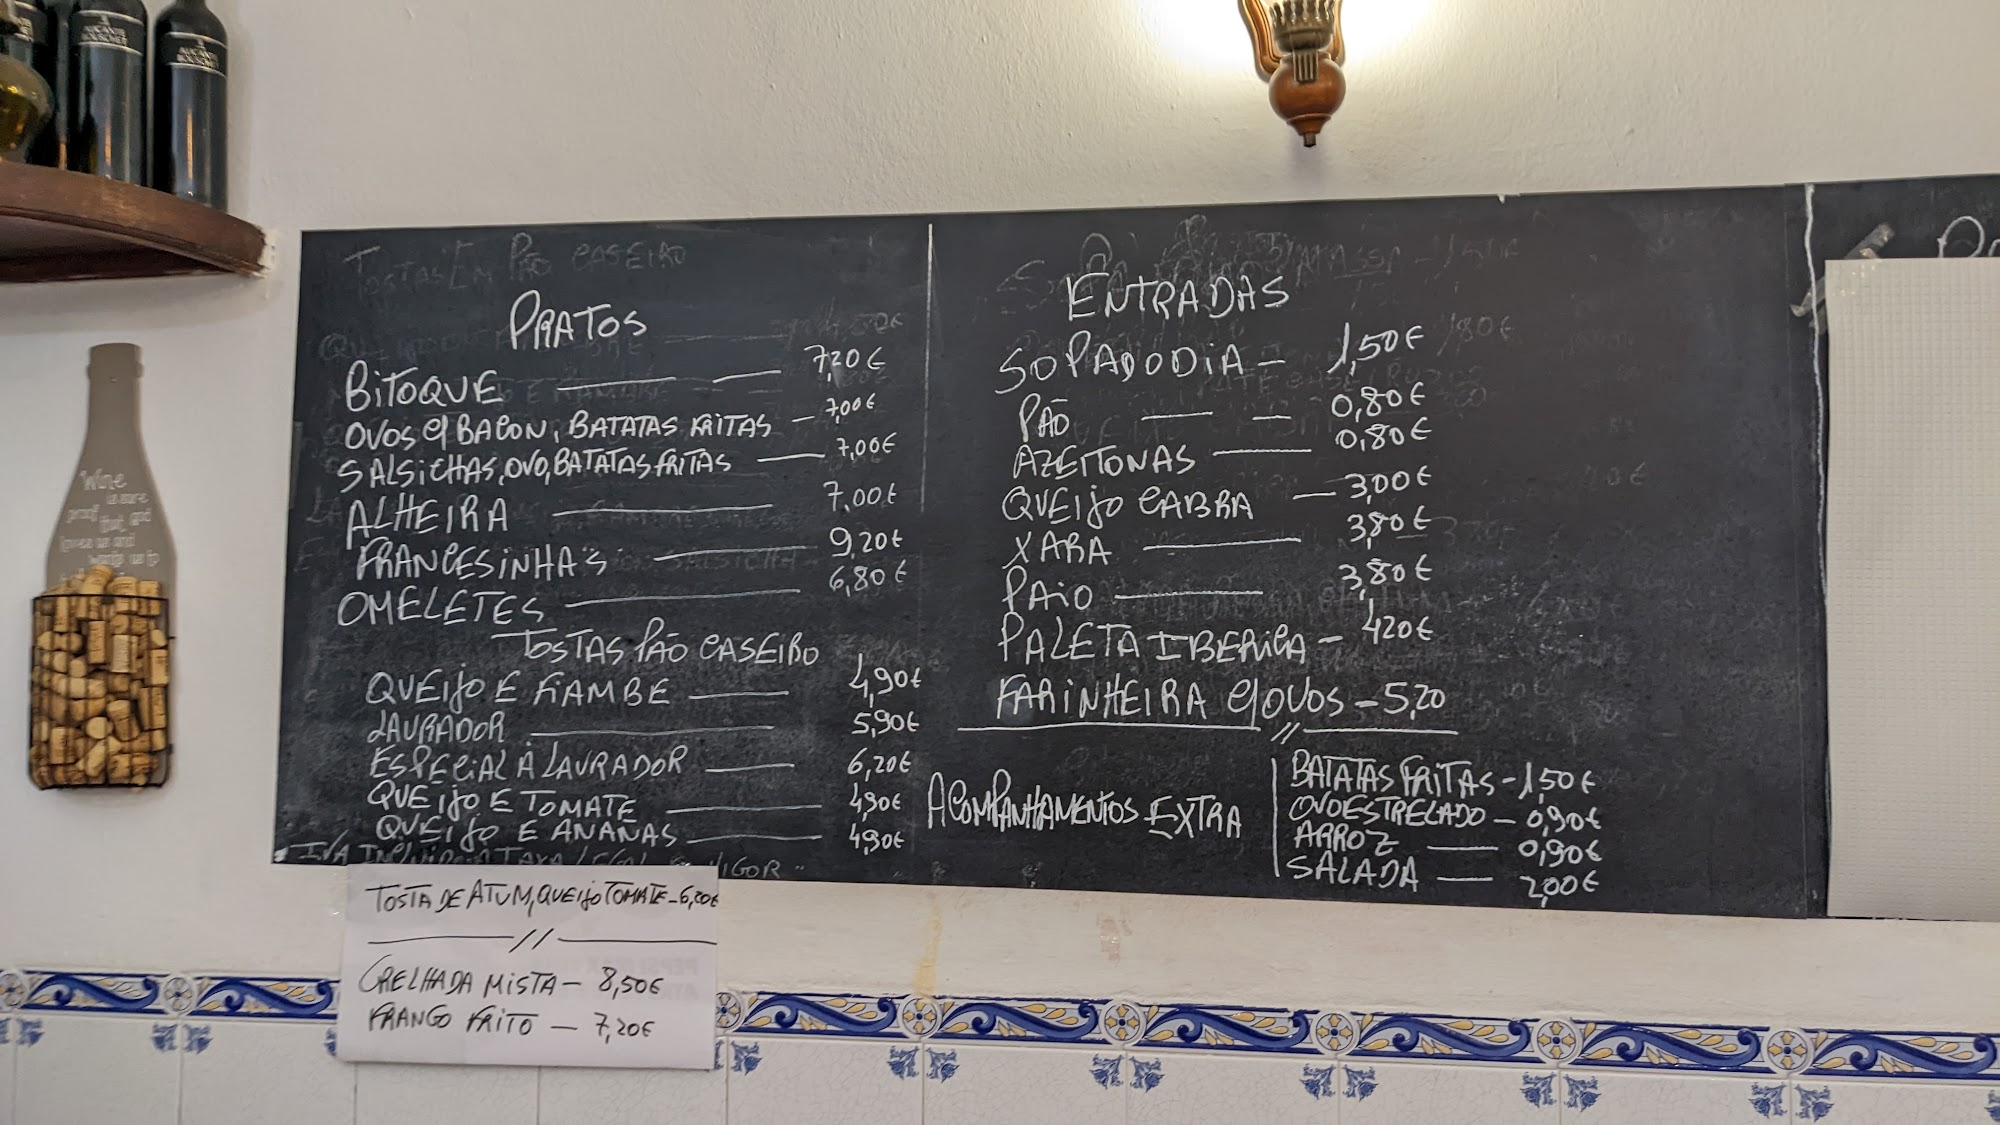 ALICANTE
BOUSCHET
ALICANTE
BOUSCHET
Wine
is sure
proof that god
loves us and
wants us to
PRATOS
BITOQUE — — 7,20€
OVOS C/ BACON, BATATAS FRITAS — 7,00€
SALSICHAS, OVO, BATATAS FRITAS — 7,00€
ALHEIRA — 7,00€
FRANCESINHAS — 9,20€
OMELETES — 6,80€
TOSTAS PÃO CASEIRO
QUEIJO E FIAMBE — 4,90€
LAVRADOR — 5,90€
ESPECIAL À LAVRADOR — 6,20€
QUEIJO E TOMATE — 4,90€
QUEIJO E ANANAS — 4,90€
TOSTA DE ATUM, QUEIJO TOMATE - 6,20€
//
GRELHADA MISTA - 8,50€
FRANGO FRITO - 7,20€
ENTRADAS
SOPA DO DIA - 1,50€
PÃO — — 0,80€
AZEITONAS — 0,80€
QUEIJO CABRA — 3,00€
XARA — 3,80€
PAIO — 3,80€
PALETA IBERICA - 420€
FARINHEIRA C/ OVOS - 5,20
//
ACOMPANHAMENTOS EXTRA
BATATAS FRITAS - 1,50€
OVO ESTRELADO - 0,90€
ARROZ — 0,90€
SALADA — 2,00€